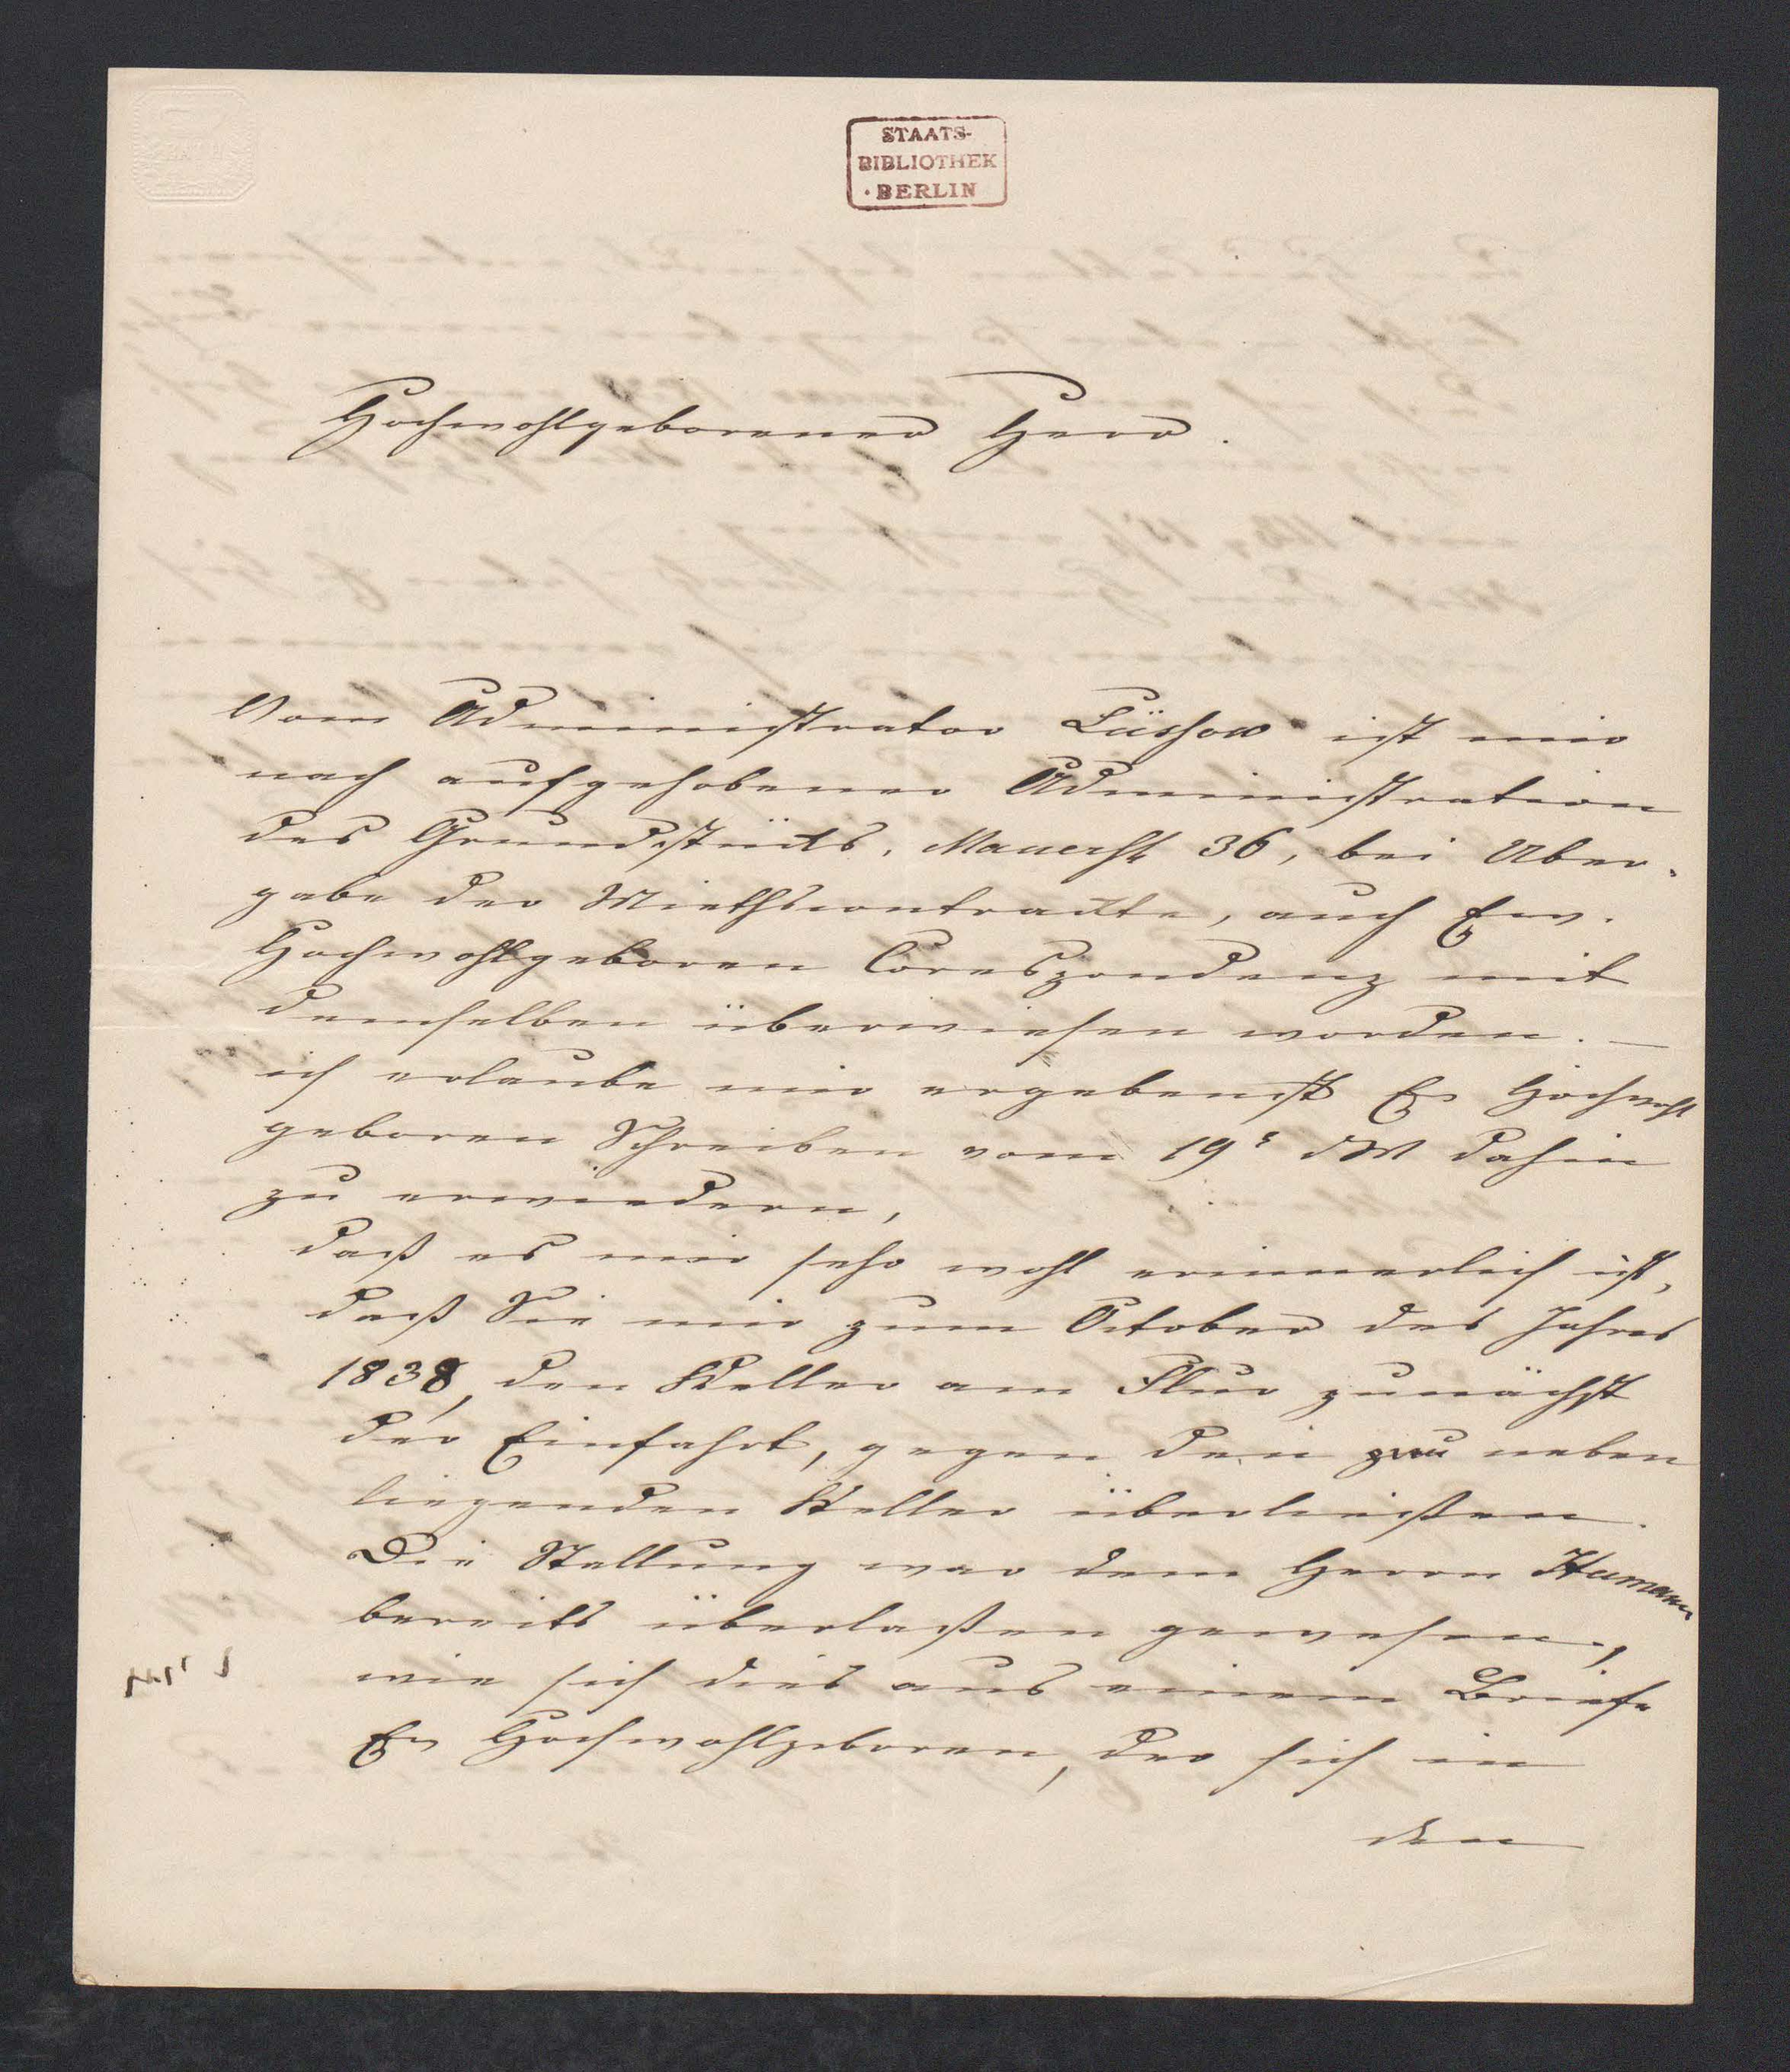 STAATS-
BIBLIOTHEK
· BERLIN
Hochwohlgeborener Herr.
Vom Administrator Lüssow ist mir
nach aufgehobener Administration
des Grundstücks, Mauerstr 36, bei Über-
gabe der Miethscontrackte, auch Ew.
Hochwohlgeboren Coreszpondenz mit
demselben überwiesen worden. —
ich erlaube mir ergebenst Ew Hochwohl
geboren Schreiben vom 19t dM dahin
zu erwiedern,
daß es mir sehr wohl erinnerlich ist,
daß Sie mir zum October des Jahres
1838, den Keller am Flur zunächst
der Einfahrt, gegen den neben
liegenden Keller überließen.
Die Stallung war dem Herrn Humann
bereits überlaßen gewesen,
wie sich dies aus einem Briefe
Ew Hochwohlgeboren, der sich in
den